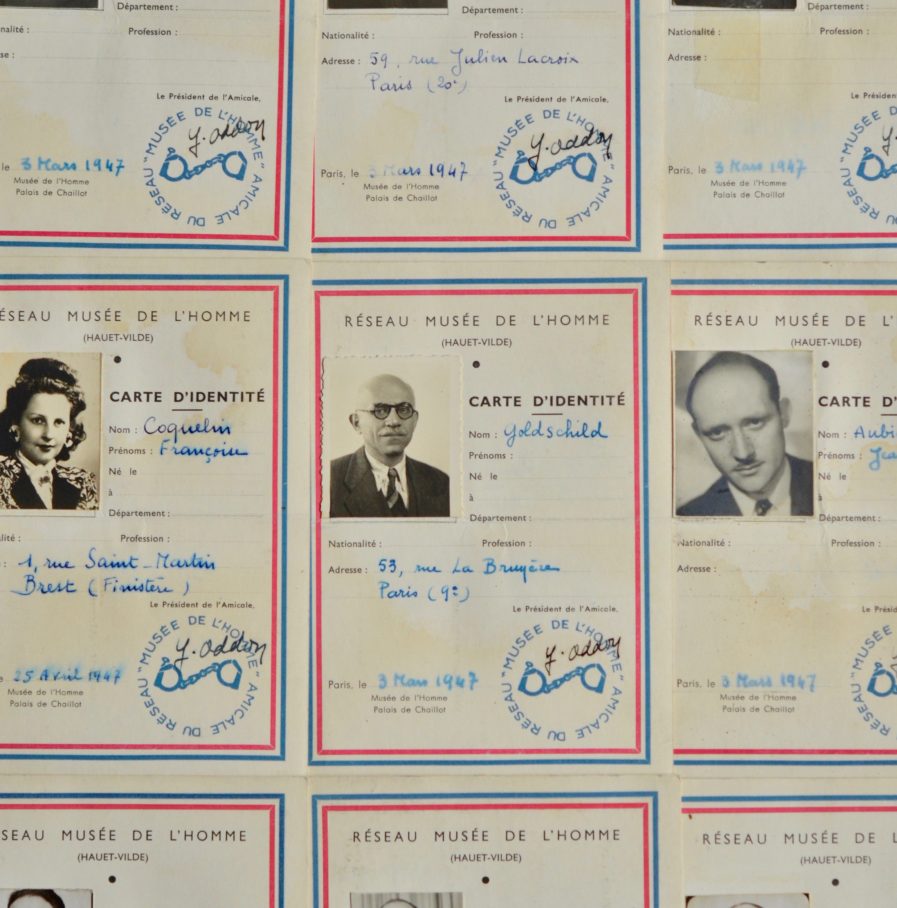 Département :
Nationalité :
Profession :
Le Président de l'Amicale,
Y. Oddon
le 3 Mars 1947
Musée de l'Homme
Palais de Chaillot
AMICALE DU RÉSEAU "MUSÉE DE L'HOMME"
Département :
Nationalité : Profession :
Adresse : 59, rue Julien Lacroix
Paris (20e)
Le Président de l'Amicale,
Y. Oddon
Paris, le 3 Mars 1947
Musée de l'Homme
Palais de Chaillot
AMICALE DU RÉSEAU "MUSÉE DE L'HOMME"
Nationalité :
Adresse :
Paris, le 3 Mars 1947
Musée de l'Homme
Palais de Chaillot
RÉSEAU MUSÉE DE L'HOMME
(HAUET-VILDE)
CARTE D'IDENTITÉ
Nom : Coquelin
Prénoms : Françoise
Né le
à
Département :
Profession :
1, rue Saint-Martin
Brest (Finistère)
Le Président de l'Amicale,
Y. Oddon
25 Avril 1947
Musée de l'Homme
Palais de Chaillot
AMICALE DU RÉSEAU "MUSÉE DE L'HOMME"
RÉSEAU MUSÉE DE L'HOMME
(HAUET-VILDE)
CARTE D'IDENTITÉ
Nom : Goldschild
Prénoms :
Né le
à
Département :
Nationalité : Profession :
Adresse : 53, rue La Bruyère
Paris (9e)
Le Président de l'Amicale,
Y. Oddon
Paris, le 3 Mars 1947
Musée de l'Homme
Palais de Chaillot
AMICALE DU RÉSEAU "MUSÉE DE L'HOMME"
RÉSEAU MUSÉE DE L'
(HAUET-VILDE)
CARTE D'
Nom : Aubi
Prénoms : Jea
Né le
à
Département :
Nationalité : Profession :
Adresse :
Paris, le 3 Mars 1947
Musée de l'Homme
Palais de Chaillot
MUSÉE DE L'HOMME
(HAUET-VILDE)
RÉSEAU MUSÉE DE L'HOMME
(HAUET-VILDE)
RÉSEAU MUSÉE DE
(HAUET-VILDE)